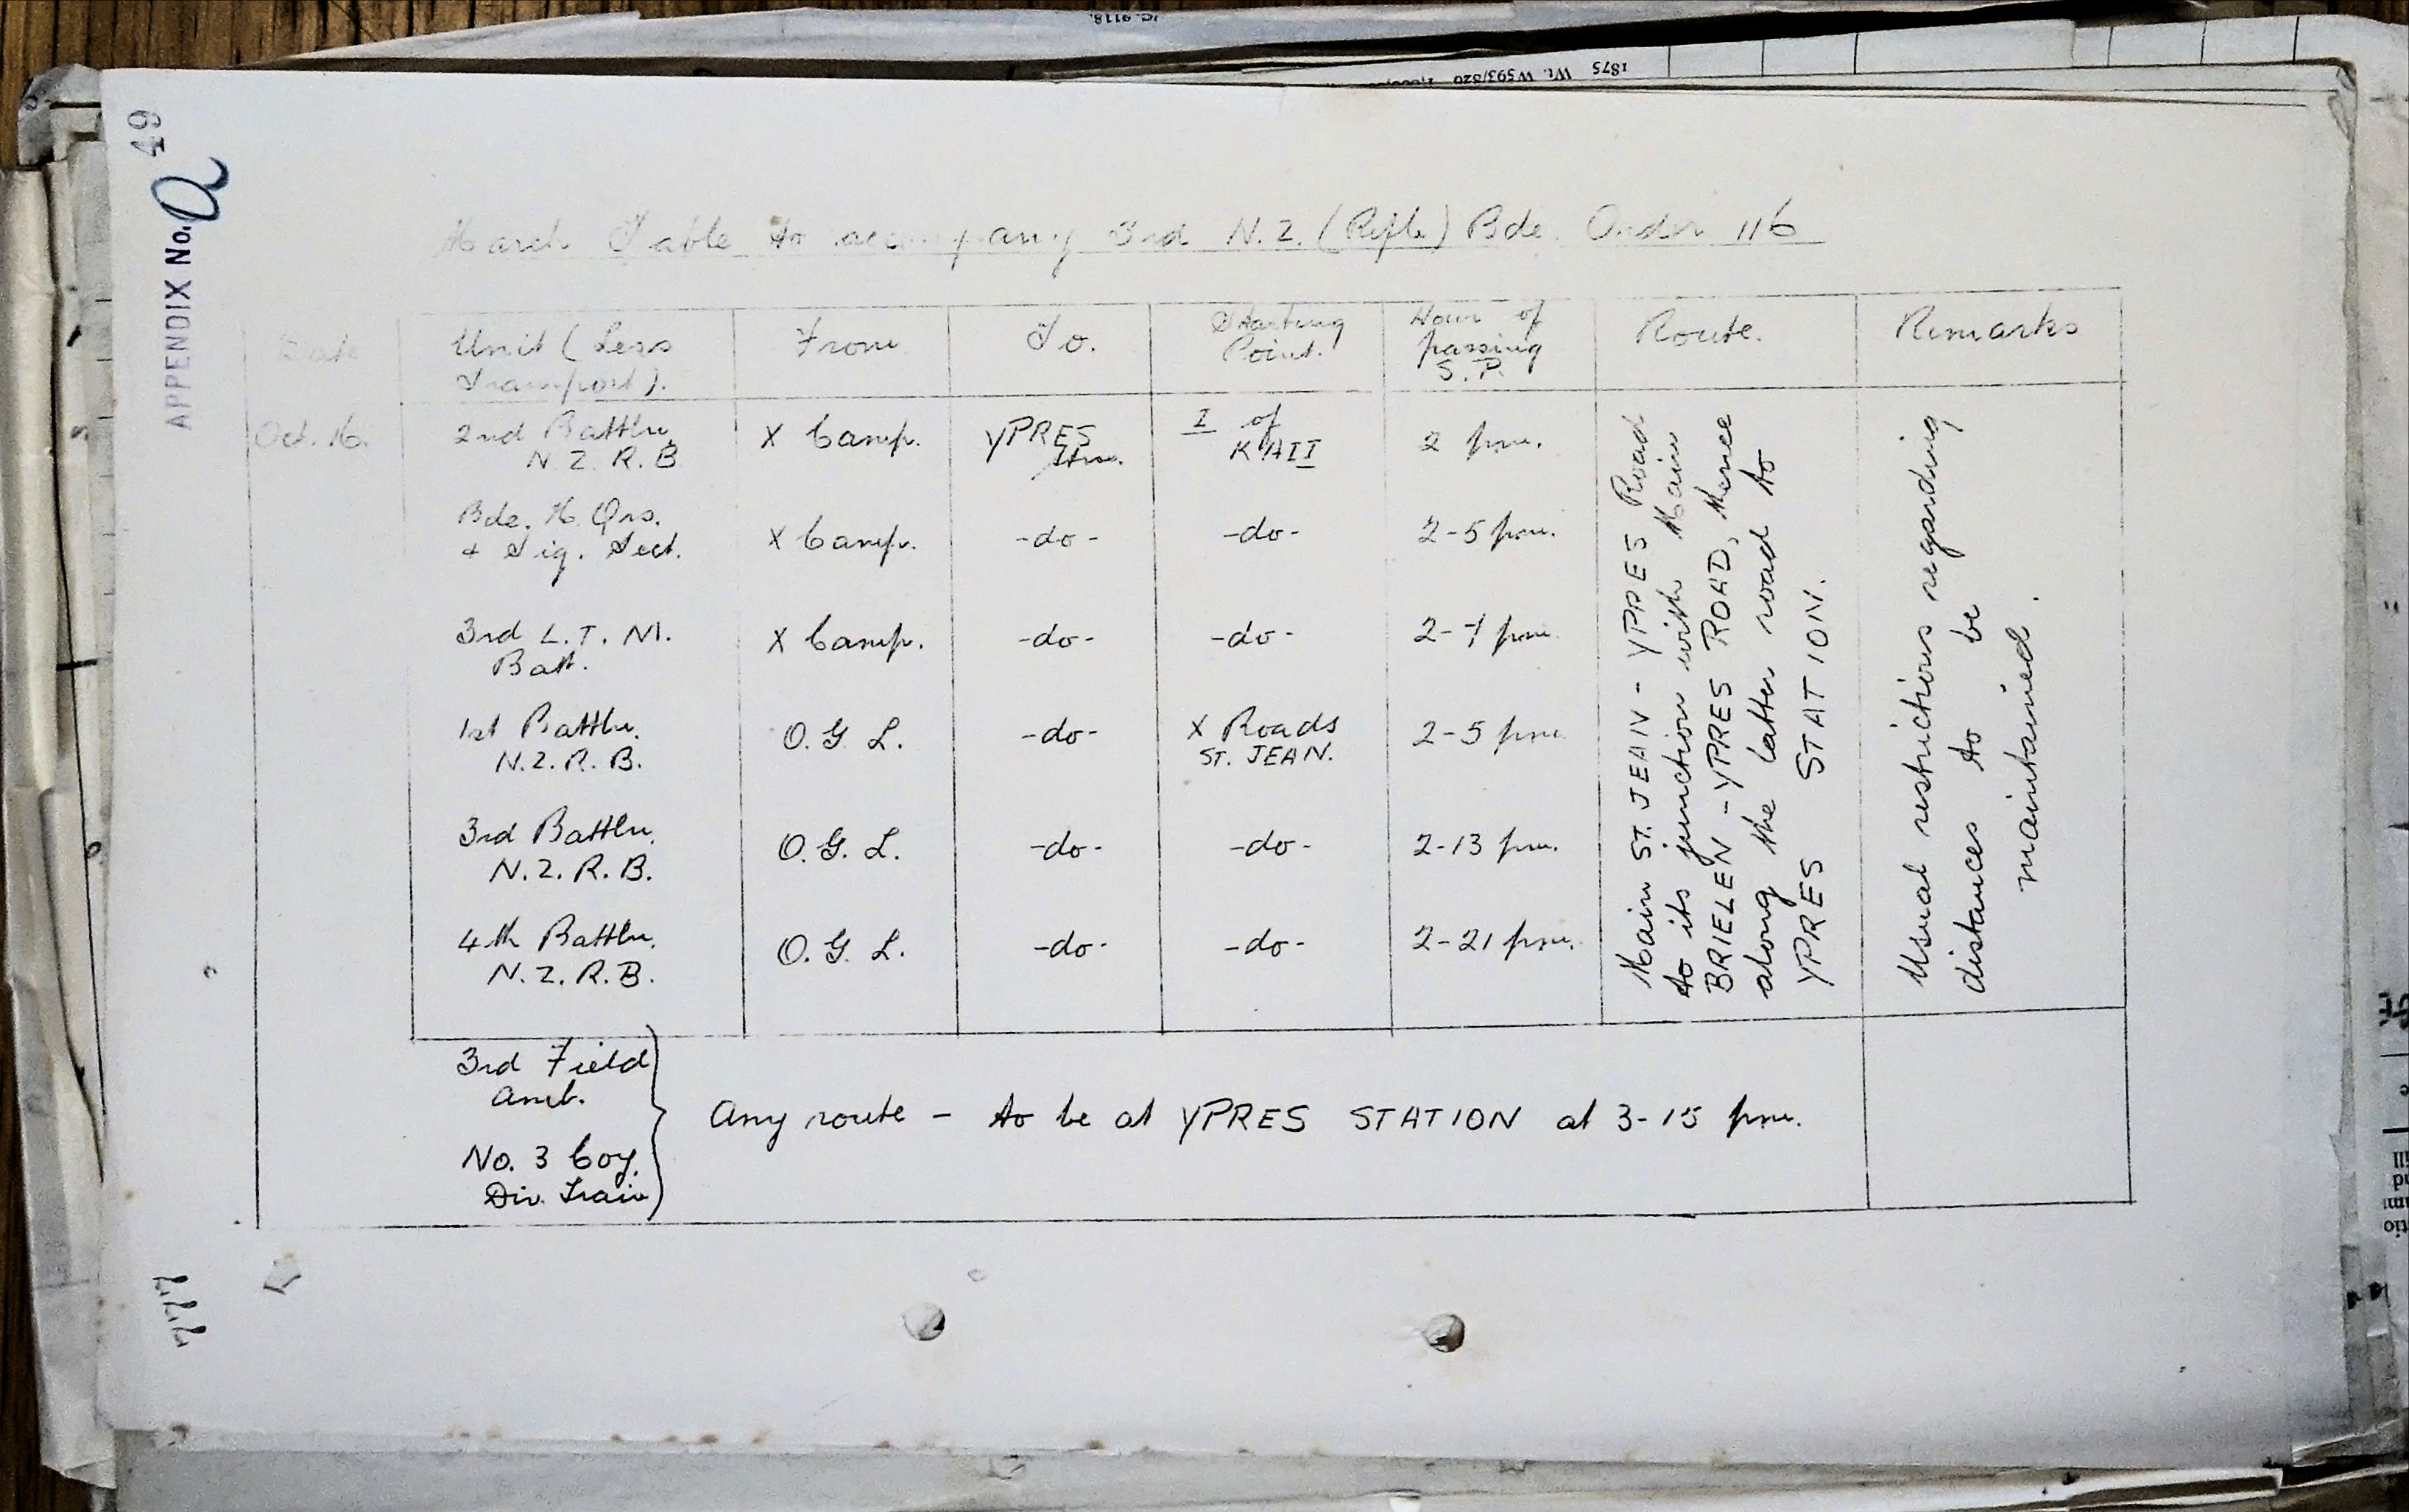 1875 Wt. W593/826
49
APPENDIX No. Q
March Table to accompany 3rd N.Z. (Rifle) Bde. Order 116
Date
Unit (Less
Transport).
From
To.
Starting
Point.
Hour of
passing
S.P.
Route.
Remarks
Oct. 16.
2nd Battln.
N Z. R. B
X Camp.
YPRES
Stn.
I of
KAII
2 pm.
Bde. H. Qrs.
+ Sig. Sect.
X Camp.
-do-
-do-
2-5 pm.
3rd L.T. M.
Batt.
X Camp.
-do-
-do-
2-7 pm.
1st Battln.
N.Z. R. B.
O. G L.
-do-
X Roads
ST. JEAN.
2-5 pm.
3rd Battln.
N.Z. R. B.
O. G. L.
-do-
-do-
2-13 pm.
4th Battln.
N.Z. R.B.
O. G. L.
-do-
-do-
2-21 pm.
Main ST. JEAN - YPRES Road
to its junction with Main
BRIELEN - YPRES ROAD, thence
along the latter road to
YPRES STATION.
Usual restrictions regarding
distances to be
maintained.
3rd Field
Amb.
No. 3 Coy.
Div. Train
Any route - to be at YPRES STATION at 3-15 pm.